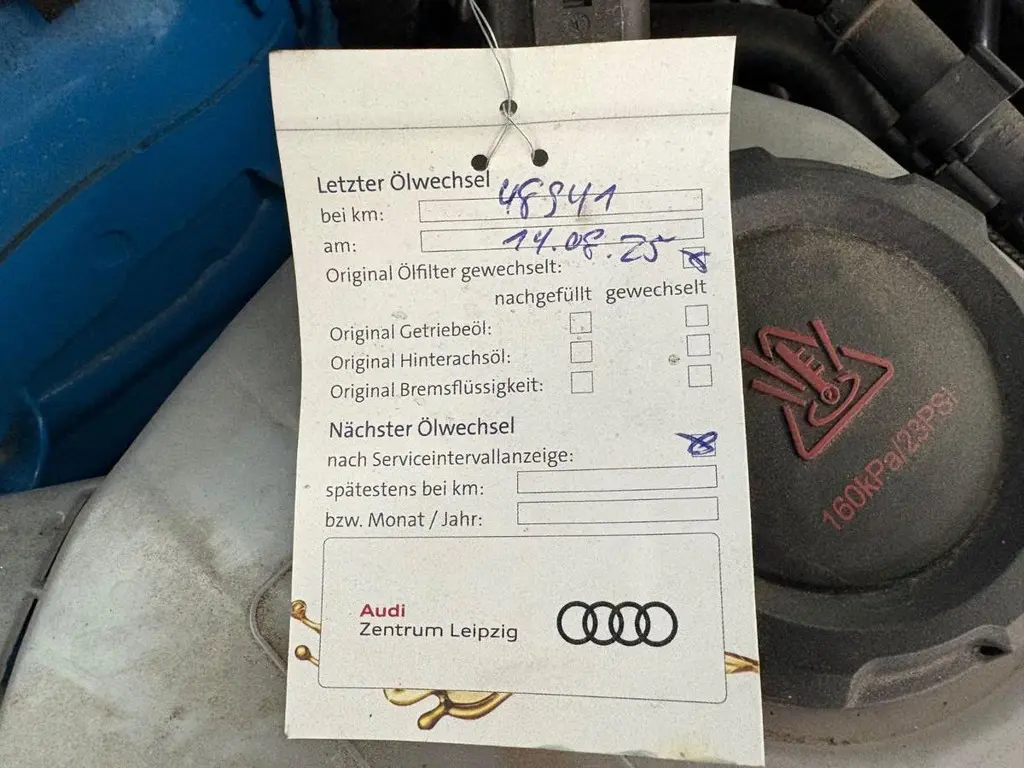 Letzter Ölwechsel
bei km: 48941
am: 14.08.25
Original Ölfilter gewechselt:
nachgefüllt gewechselt
Original Getriebeöl:
Original Hinterachsöl:
Original Bremsflüssigkeit:
Nächster Ölwechsel
nach Serviceintervallanzeige:
spätestens bei km:
bzw. Monat / Jahr:
Audi
Zentrum Leipzig
160kPa/23PSi